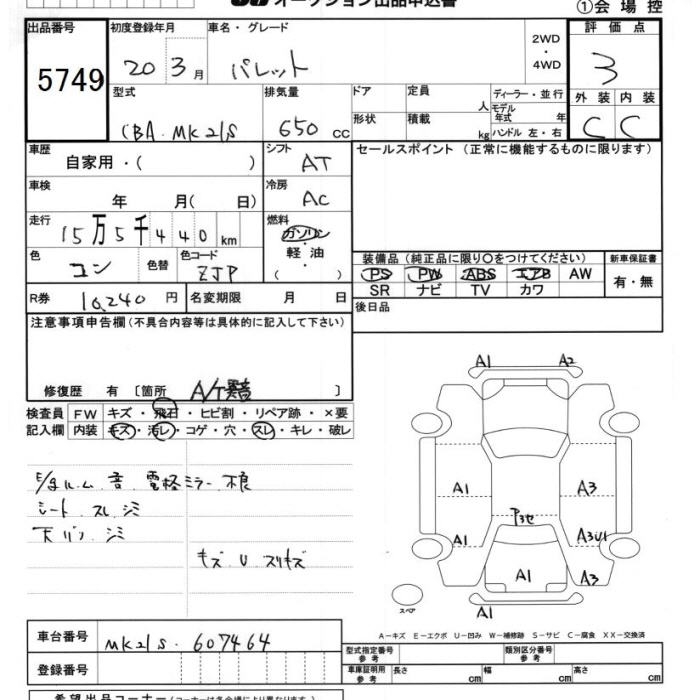 オークション出品申込書
①会場控
出品番号
5749
初度登録年月
20 3月
車名・グレード
パレット
2WD
・
4WD
評価点
3
型式
CBA. MK21S
排気量
650 cc
ドア
定員
人
ディーラー・並行
形状
積載
kg
モデル年式 年
ハンドル 左・右
外装 内装
C C
車歴
自家用・( )
シフト
AT
セールスポイント (正常に機能するものに限ります)
車検
年 月( 日)
冷房
AC
走行
15万5千440km
燃料
ガソリン
・
軽油
・
( )
色
コン
色替
色コード
ZJP
装備品(純正品に限り○をつけてください)
新車保証書
PS PW ABS エアB AW
SR ナビ TV カワ
有・無
R券
10,240円
名変期限 月 日
後日品
注意事項申告欄(不具合内容等は具体的に記入して下さい)
修復歴 有 〔箇所
〕
検査員
記入欄
FW キズ・飛石・ヒビ割・リペア跡・×要
内装 キズ・汚レ・コゲ・穴・スレ・キレ・破レ
E/gルーム 音 電軽ミラー不良
シート スレ シミ
天バリ シミ
キズ U スリキズ
A1
A2
A1
A3
P3セ
A1
A3U1
A1
A3
A1
スペア
A-キズ E-エクボ U-凹み W-補修跡 S-サビ C-腐食 XX-交換済
車台番号
MK21S. 607464
登録番号
型式指定番号
参考
類別区分番号
参考
車庫証明用
参考
長さ cm
幅 cm
高さ cm
希望出品コーナー